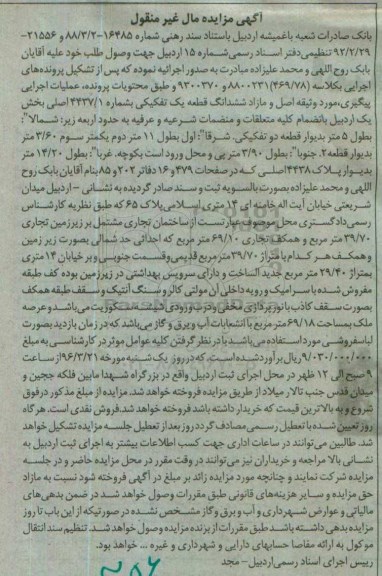 آگهی مزایده مال غیر منقول
بانک صادرات شعبه باغمیشه اردبیل باستناد سند رهنی شماره ۱۶۴۸۵-۸۸/۳/۲ و ۲۱۵۵۶-
۹۲/۲/۲۹ تنظیمی دفتر اسناد رسمی شماره ۱۵ اردبیل جهت وصول طلب خود علیه آقایان
بابک روح اللهی و محمد علیزاده مبادرت به صدور اجرائیه نموده که پس از تشکیل پرونده‌های
اجرایی بکلاسه (۴۶۹/۷۸) ۸۸۰۰۲۳۱ و ۹۳۰۰۳۷۰ و طبق محتویات پرونده، عملیات اجرایی
پیگیری، مورد وثیقه اصل و مازاد ششدانگ قطعه یک تفکیکی بشماره ۴۴۳۷/۱ اصلی بخش
یک اردبیل بانضمام کلیه متعلقات و منضمات شرعیه و عرفیه به حدود اربعه زیر: شمالا":
بطول ۵ متر بدیوار قطعه دو تفکیکی. شرقا": اول بطول ۱۱ متر دوم یکمتر سوم ۳/۶۰ متر
بدیوار قطعه ۲. جنوبا": بطول ۳/۹۰ متر پی و محل ورود است بکوچه. غربا": بطول ۱۴/۲۰ متر
بدیوار پلاک ۴۴۳۸ اصلی که در صفحات ۴۷۹ و ۱۶ دفاتر ۲۰۲ و ۸۵ بنام آقایان بابک روح
اللهی و محمد علیزاده بصورت بالسویه ثبت و سند صادر گردیده به نشانی - اردبیل میدان
شریعتی خیابان آیت اله خامنه ای ۱۴ متری اسلامی پلاک ۶۵ که طبق نظریه کارشناس
رسمی دادگستری محل موصوف عبارتست از ساختمان تجاری مشتمل بر زیرزمین تجاری
۳۹/۷۰ متر مربع و همکف تجاری ۶۹/۱۰ متر مربع که احداثی حد شمالی بصورت زیر زمین
و همکف هر کدام با متراژ ۳۹/۷۰ متر مربع قدیمی و قسمت جنوبی و بر خیابان ۱۴ متری
بمتراژ ۲۹/۴۰ متر مربع جدید الساخت و دارای سرویس بهداشتی در زیرزمین بوده کف طبقه
مفروش شده با سرامیک و رویه داخلی آن مولتی کالر و سنگ آنتیک و سقف طبقه همکف
بصورت سقف کاذب با نورپردازی مخفی و درب ورودی شیشه سکوریت می‌باشد و عرصه
ملک بمساحت ۶۹/۱۸ متر مربع با انشعابات آب و برق و گاز می‌باشد که در زمان بازدید بصورت
لباسفروشی مورد استفاده می‌باشد با در نظر گرفتن کلیه عوامل موثر در کارشناسی به مبلغ
۹/۰۳۰/۰۰۰/۰۰۰ ریال برآورد شده است، که در روز یک شنبه مورخه ۹۶/۳/۲۱ از ساعت
۹ صبح الی ۱۲ ظهر در محل اجرای ثبت اردبیل واقع در بزرگراه شهدا مابین فلکه ججین و
میدان قدس جنب تالار میلاد از طریق مزایده فروخته خواهد شد. مزایده از مبلغ مذکور در فوق
شروع و به بالاترین قیمت که خریدار داشته باشد فروخته خواهد شد. فروش نقدی است. هر گاه
روز تعیین شده با تعطیل رسمی مصادف گردد روز بعد از تعطیل جلسه مزایده تشکیل خواهد
شد. طالبین می‌توانند در ساعات اداری جهت کسب اطلاعات بیشتر به اجرای ثبت اردبیل به
نشانی بالا مراجعه و خریداران نیز می‌توانند در وقت مقرر در محل مزایده حاضر و در جلسه
مزایده شرکت نمایند و چنانچه مورد مزایده زائد بر مبلغ در آگهی فروخته شود نسبت به مازاد
حق مزایده و سایر هزینه‌های قانونی طبق مقررات وصول خواهد شد در ضمن بدهی‌های
مالیاتی و عوارض شهرداری و آب و برق و گاز مشخص نشده در صورتیکه از این باب تا روز
مزایده بدهی داشته باشد طبق مقررات از برنده مزایده وصول خواهد شد. تنظیم سند انتقال
موکول به ارائه مفاصا حسابهای دارایی و شهرداری و غیره ... خواهد بود.
رییس اجرای اسناد رسمی اردبیل - مجد